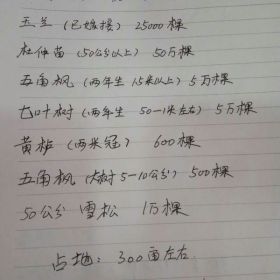 玉兰（已嫁接）25000棵
杜仲苗（50公分以上）50万棵
五角枫（两年生 1.5米以上）5万棵
七叶树（两年生 50-1米左右）5万棵
黄栌（两米冠）600棵
五角枫（大树5-10公分）500棵
50公分 雪松 1万棵
占地：300亩左右